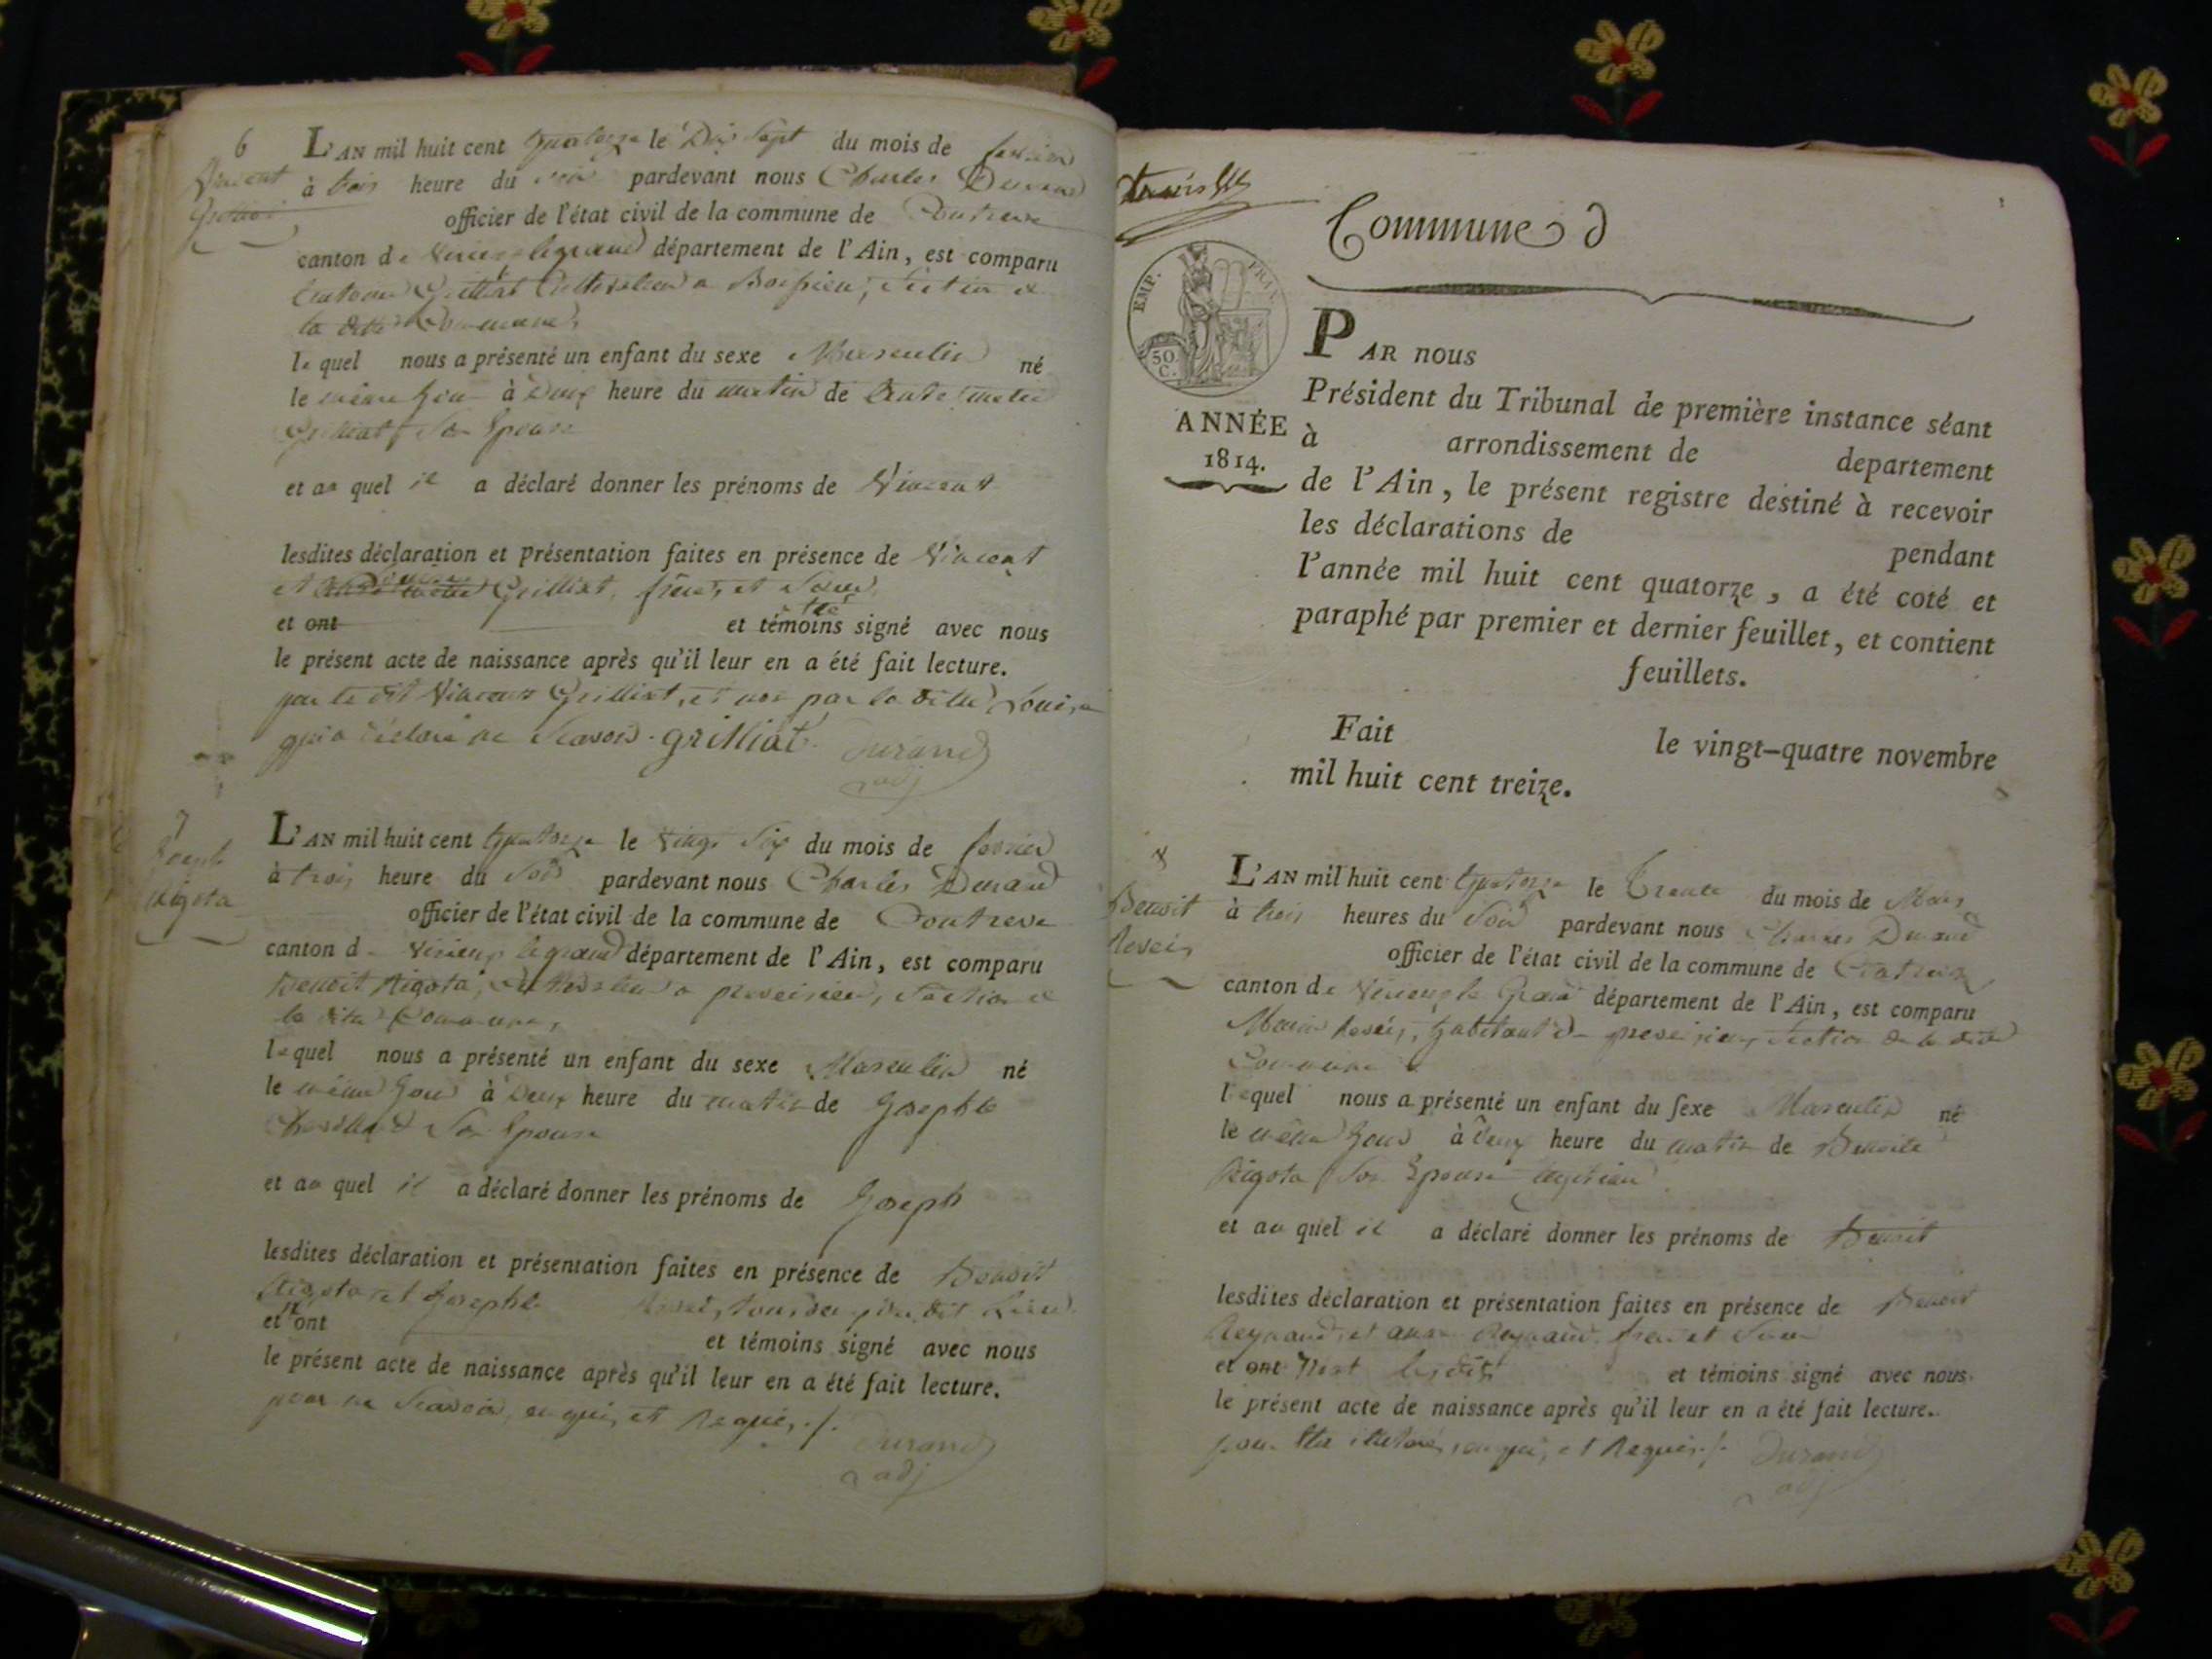 6
Vincent
Grilliat
L'AN mil huit cent quatorze le Dix Sept du mois de fevrier
à trois heure du soir pardevant nous Charles Durand
officier de l'état civil de la commune de Contrevoz
canton de Virieu le grand département de l'Ain, est comparu
Grilliat Cultivateur a Section de
la ditte Commune,
le quel nous a présenté un enfant du sexe Masculin né
le même jour à deux heure du matin de
Grilliat Son Epouse
et au quel il a déclaré donner les prénoms de Vincent
lesdites déclaration et présentation faites en présence de Vincent
et Louise Grilliat, frere, et Soeur,
et ont et témoins signé avec nous
le présent acte de naissance après qu'il leur en a été fait lecture.
par le dit Vincent Grilliat, et non par la ditte Louise
qui a déclaré ne Scavoir. grilliat. Durand
adj
7
Joseph
Rigota
L'AN mil huit cent quatorze le Vingt Six du mois de fevrier
à trois heure du Soir pardevant nous Charles Durand
officier de l'état civil de la commune de Contrevoz
canton de Virieu le grand département de l'Ain, est comparu
Benoit Rigota, Cultivateur a preveisieu, Section de
la ditte Commune,
lequel nous a présenté un enfant du sexe Masculin né
le même jour à Deux heure du matin de Josephte
Son Epouse
et au quel il a déclaré donner les prénoms de Joseph
lesdites déclaration et présentation faites en présence de Benoit
Rigota et Josephte tous deux du dit Lieu.
et n'ont et témoins signé avec nous
le présent acte de naissance après qu'il leur en a été fait lecture.
pour ne Scavoir, enquis, et Requis./. Durand
adj
Commune d
EMP. FRAN.
50. C.
ANNÉE
1814.
PAR nous
Président du Tribunal de première instance séant
à arrondissement de departement
de l'Ain, le présent registre destiné à recevoir
les déclarations de pendant
l'année mil huit cent quatorze, a été coté et
paraphé par premier et dernier feuillet, et contient
feuillets.
Fait le vingt-quatre novembre
mil huit cent treize.
8
Benoit
L'AN mil huit cent quatorze le Trente du mois de Mars
à trois heures du Soir pardevant nous Charles Durand
officier de l'état civil de la commune de Contrevoz
canton de Virieu le Grand département de l'Ain, est comparu
habitant de preveisieu, Section de la ditte
Commune
lequel nous a présenté un enfant du sexe Masculin né
le même jour à Deux heure du matin de Benoite
Rigota Son Epouse
et au quel il a déclaré donner les prénoms de Benoit
lesdites déclaration et présentation faites en présence de Benoit
Reynaud, et anne Reynaud frere et Soeur
et ont n'ont lesdits et témoins signé avec nous
le présent acte de naissance après qu'il leur en a été fait lecture.
pour etre illiterés, enquis, et Requis./. Durand
adj